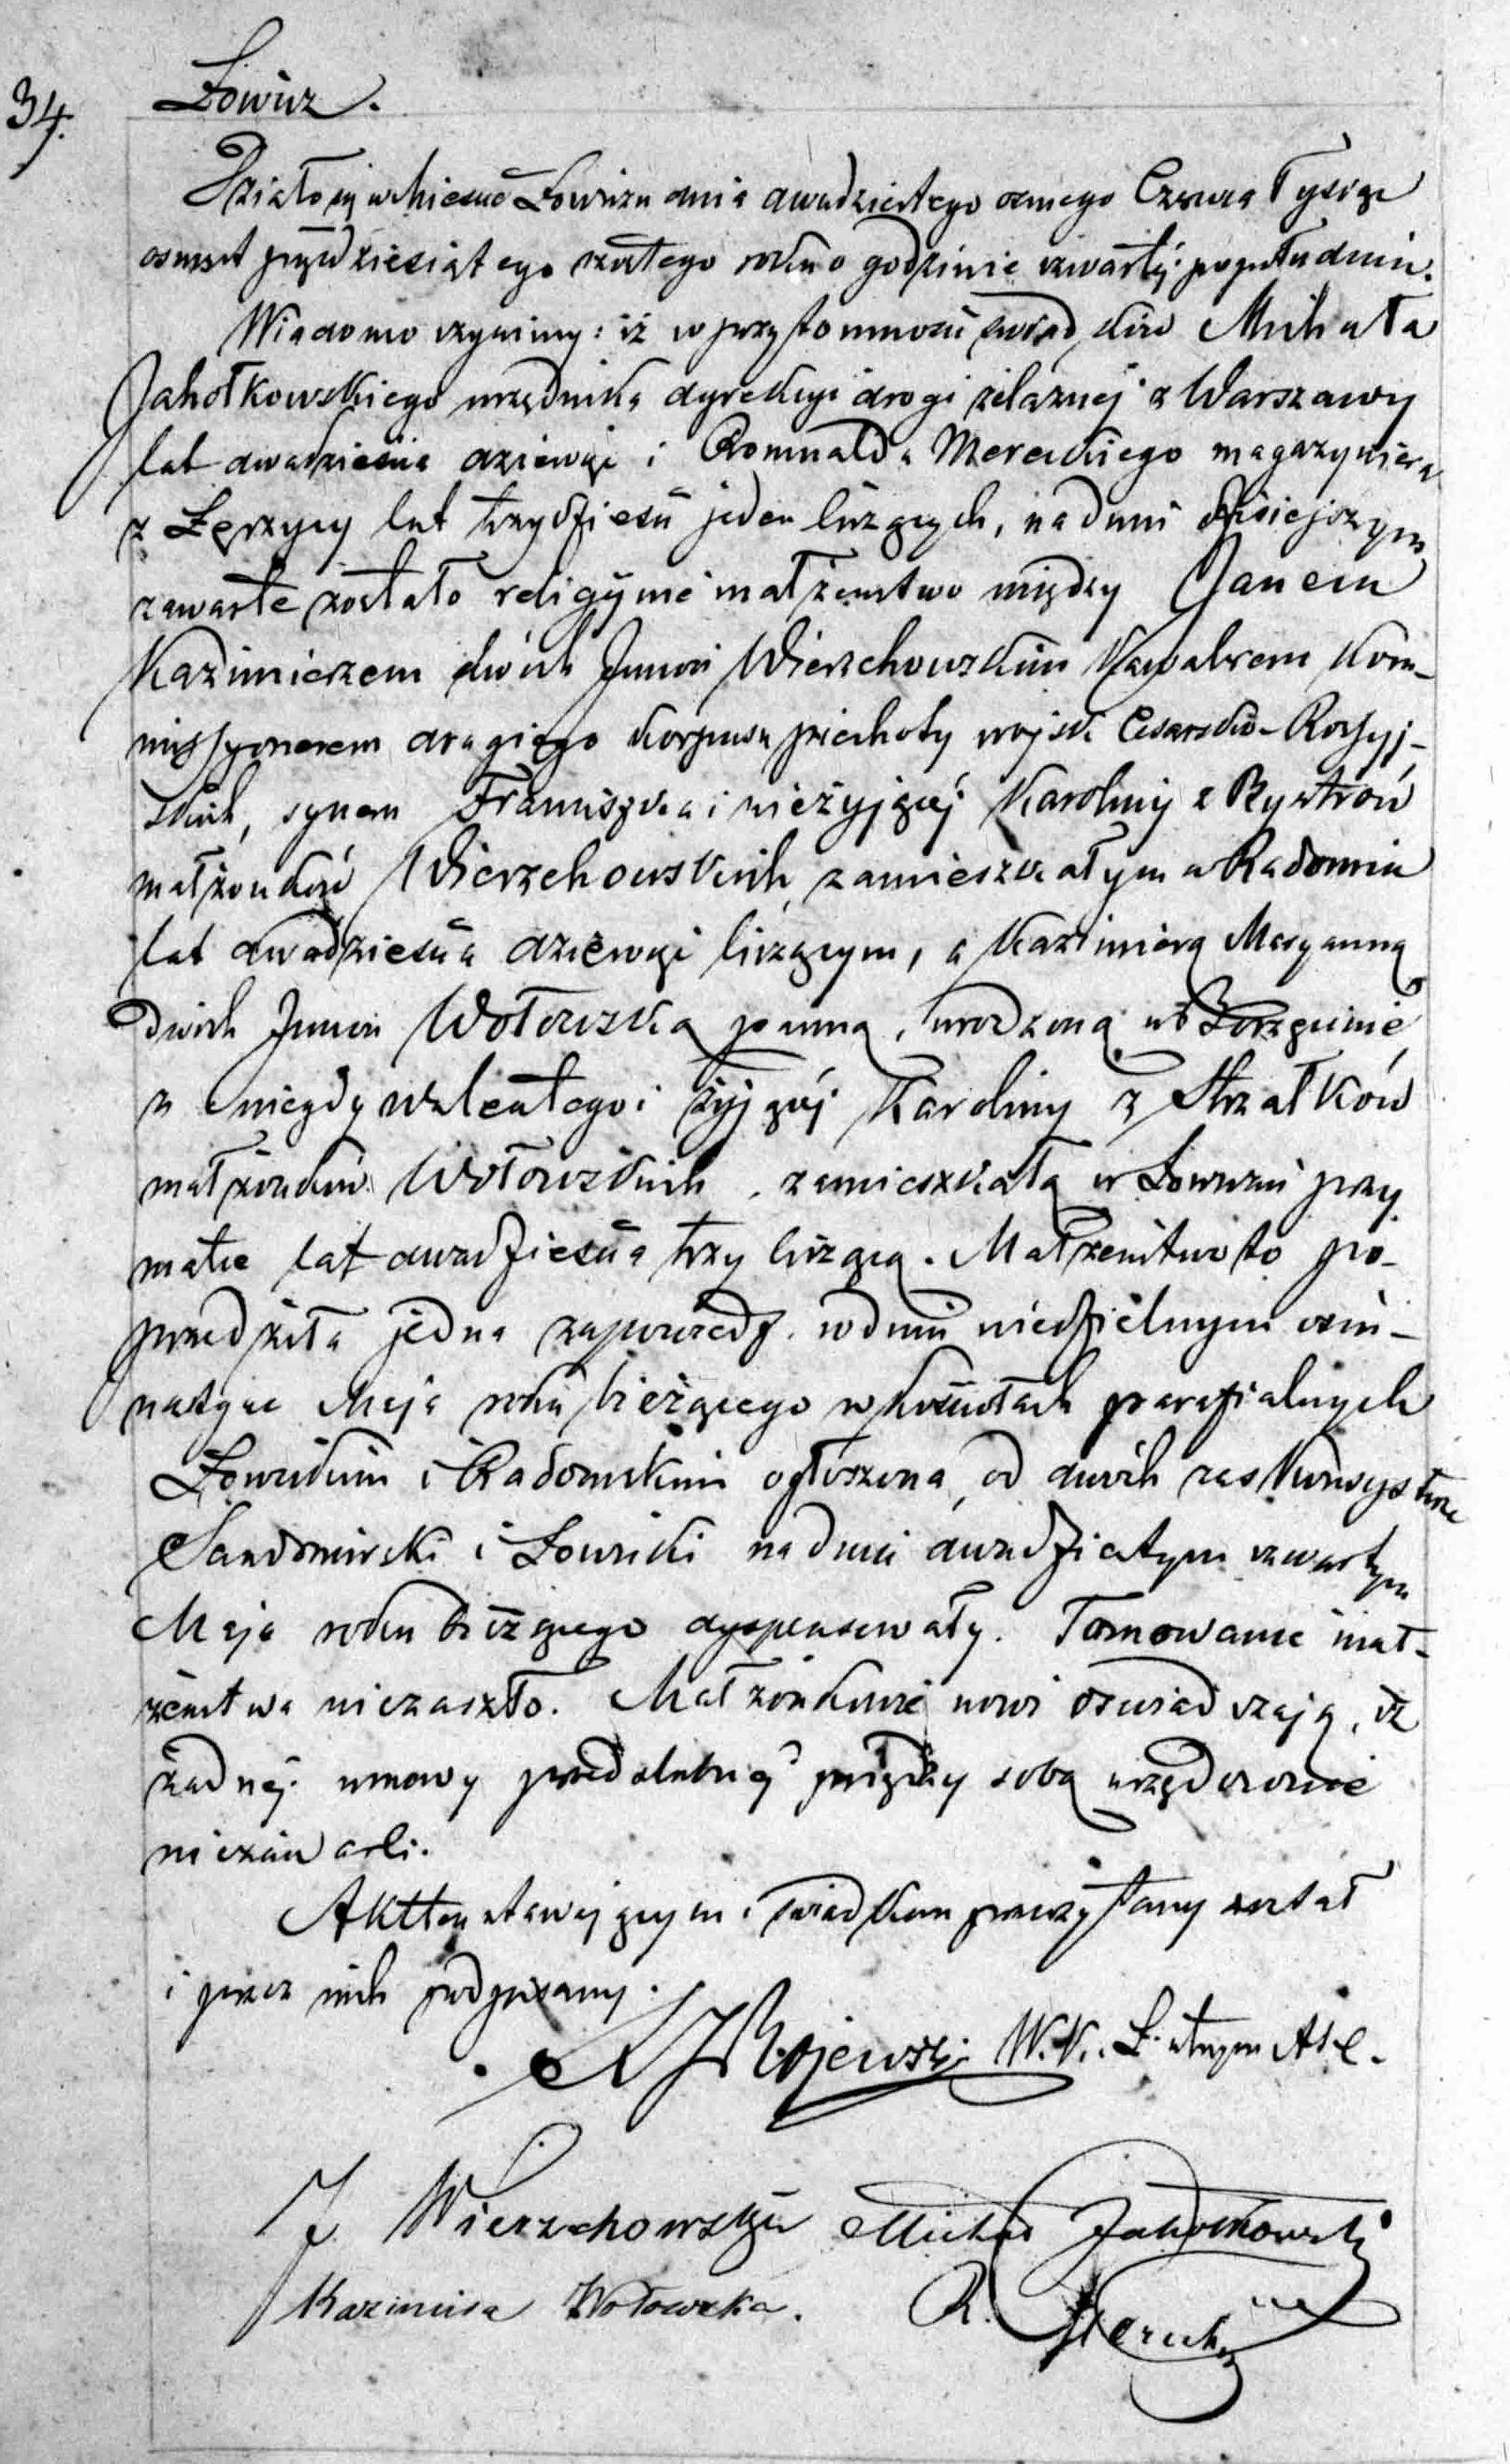 34.
Łowicz.
Działo się w Mieście Łowiczu dnia dwudziestego osmego Czerwca Tysiąc
osmset pięćdziesiątego szóstego roku o godzinie czwartéj popołudniu.
Wiadomo czynimy: iż w przytomności świadków Michała
Jahołkowskiego urzędnika dyrekcyi drogi żelaznéj z Warszawy
lat dwadzieścia dziewięć i Romualda Mereckiego magazyniera
z Łęczycy lat trzydzieści jeden liczących, na dniu dzisiejszym
zawarte zostało religijne małżeństwo między Janem
Kazimierzem dwóch Imion Wierzchowskim Kawalerem Kom-
missyonerem drugiego korpusu piechoty wojsk Cesarsko-Rossyj-
skich, synem Franciszka i nieżyjącéj Karoliny z Bystroń
małżonków Wierzchowskich, zamieszkałym w Radomiu
lat dwadzieścia dziewięć liczącym, a Kazimirą Maryanną
dwóch Imion Wołowską panną, urodzoną w
z niegdy Walentego i żyjącéj Karoliny z Strzałków
małżonków Wołowskich, zamieszkałą w Łowiczu przy
matce lat dwadzieścia trzy liczącą. Małżeństwo to po-
przedziła jedna zapowiedź w dniu niedzielnym ośm-
nastym Maja roku bieżącego w kościołach parafialnych
Łowickim i Radomskim ogłoszona, od dwóch zaś Konsystorze
Sandomirski i Łowicki na dniu dwudziestym czwartym
Maja roku bieżącego dyspensowały. Tamowanie mał-
żeństwa niezaszło. Małżonkowie nowi oświadczają, iż
żadnéj umowy przedślubnéj między sobą urzędownie
niezawarli.
Akt ten stawającym i świadkom przeczytany został
i przez nich podpisany.
W.K.Ł. utrzym A S C.
J Wierzchowski Michał Jahołkowski
Kazimira Wołowska. R. Merecki